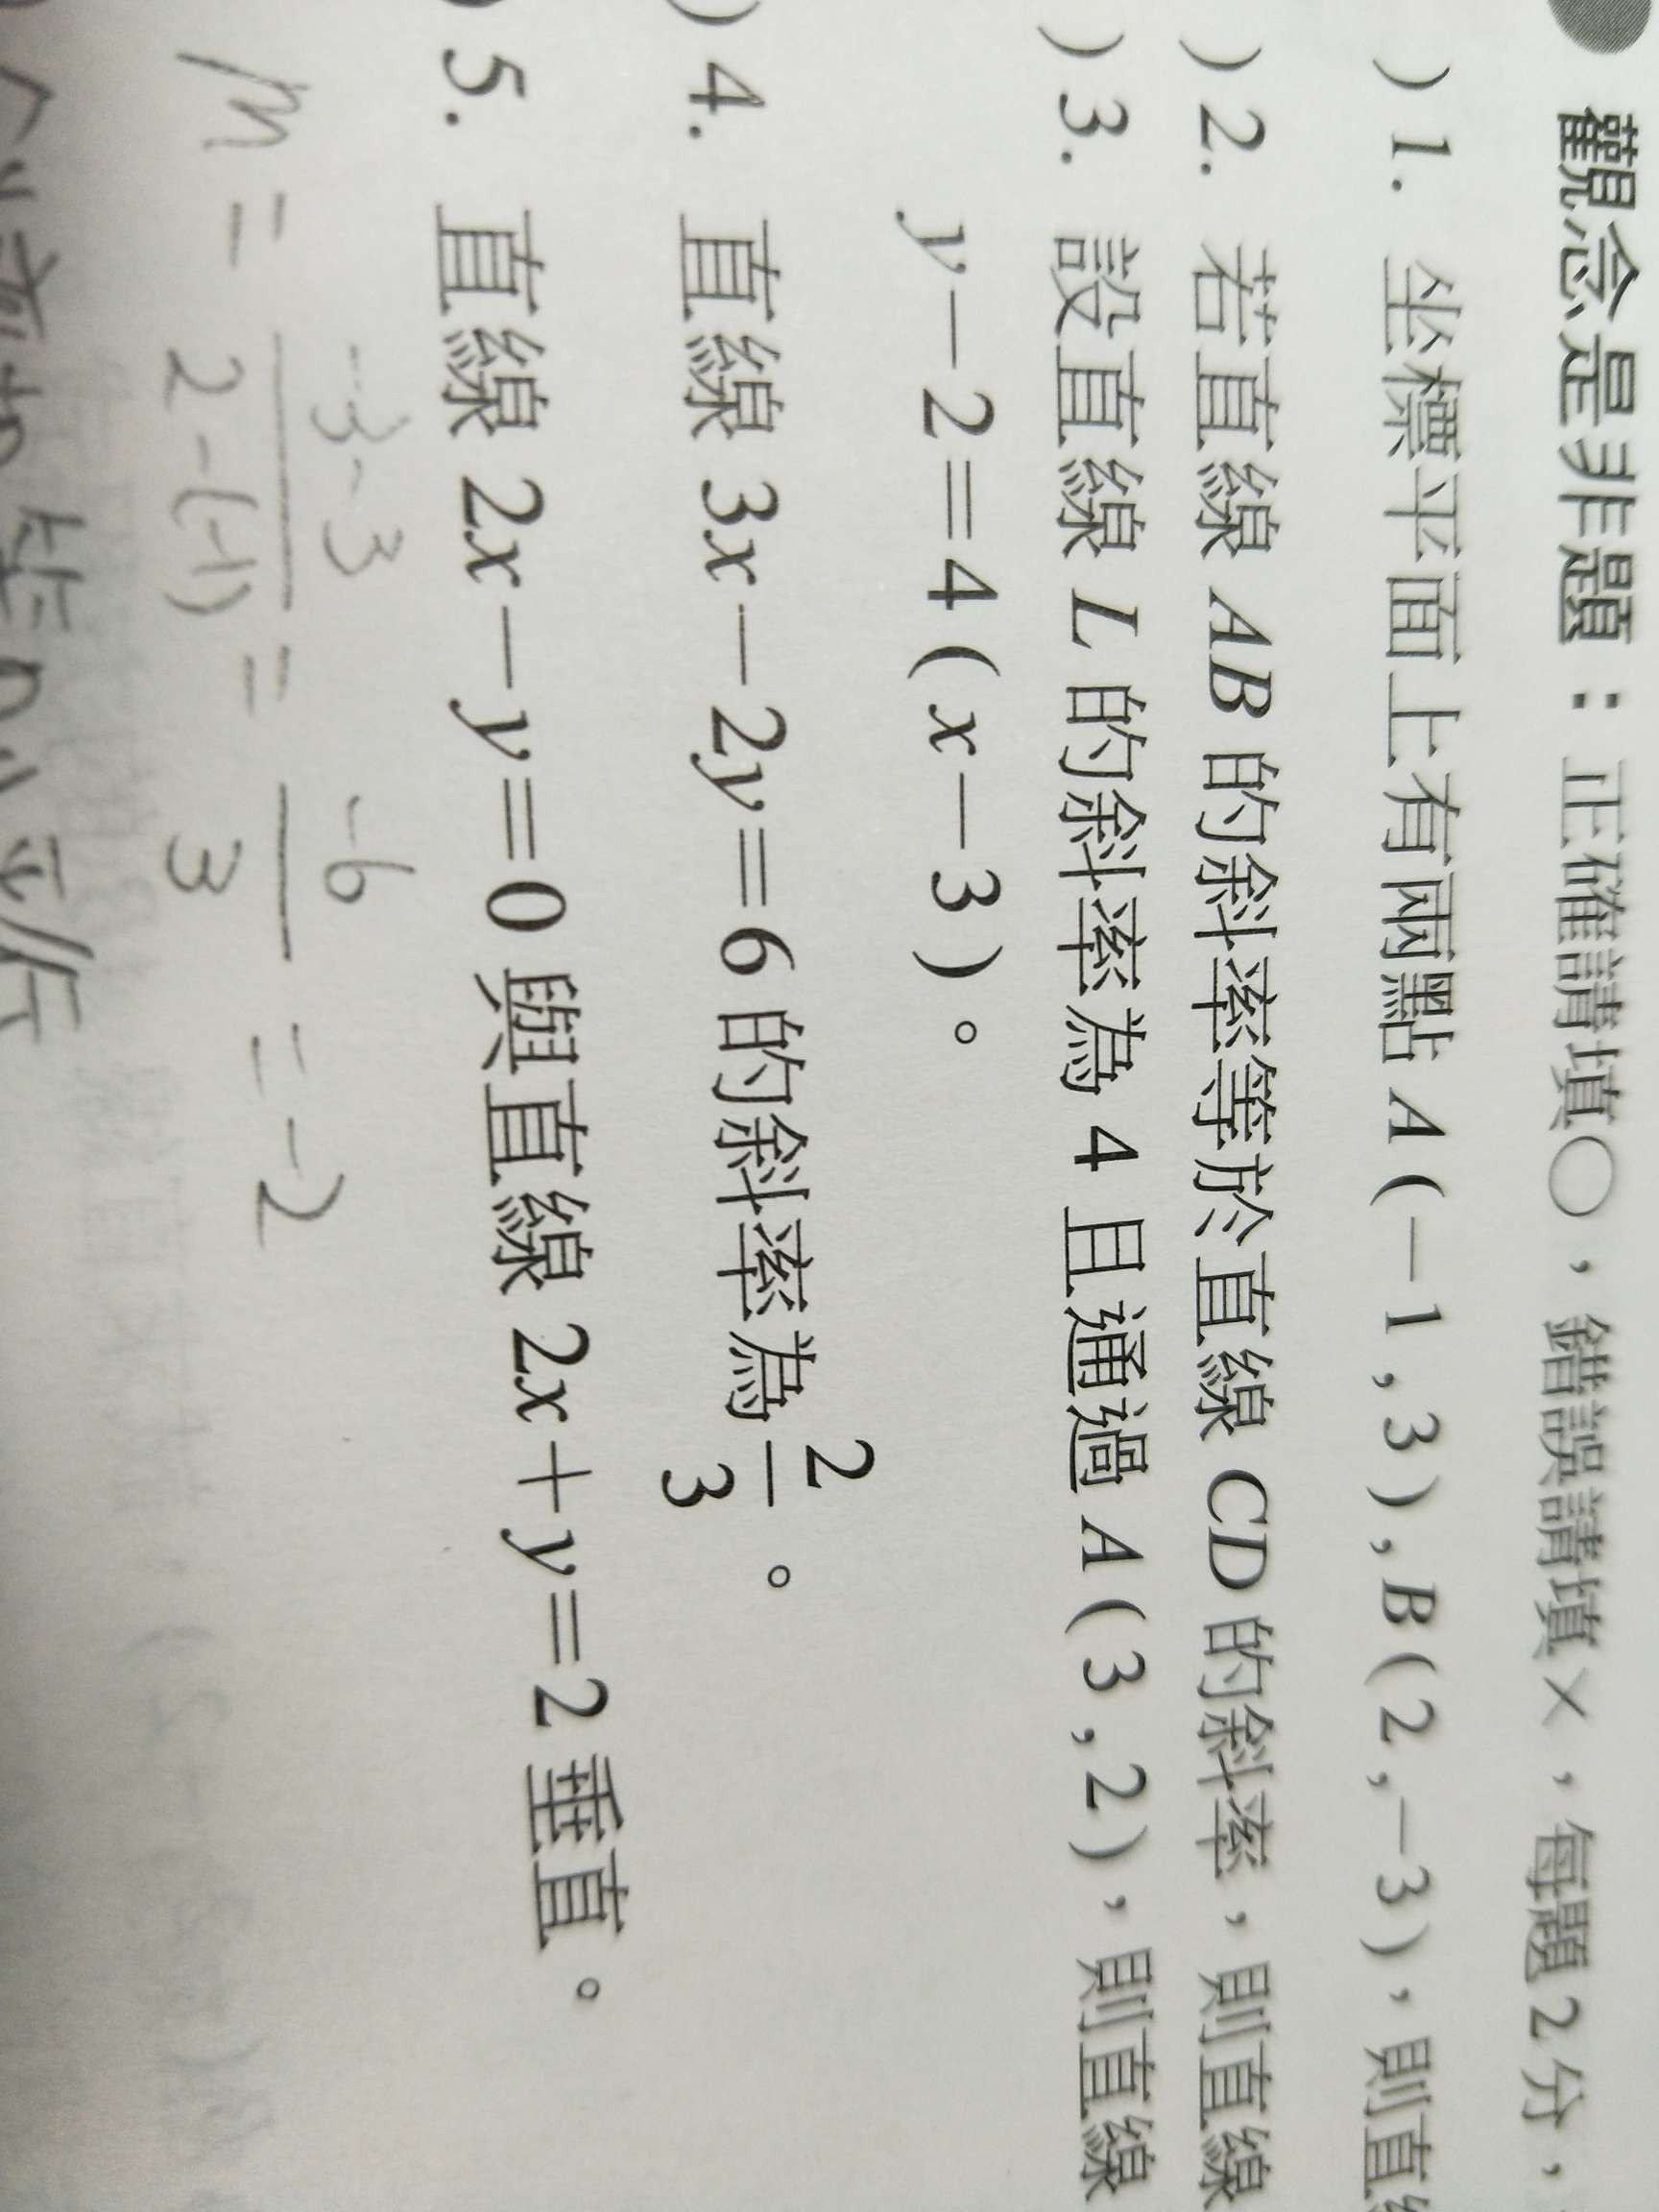 觀念是非題：正確請填○，錯誤請填×，每題2分，
)1. 坐標平面上有兩點 A(−1,3),B(2,−3)，則直線
)2. 若直線 AB 的斜率等於直線 CD 的斜率，則直線
)3. 設直線 L 的斜率為 4 且通過 A(3,2)，則直線
y−2=4(x−3)。
)4. 直線 3x−2y=6 的斜率為 2/3。
)5. 直線 2x−y=0 與直線 2x+y=2 垂直。
m = -3-3/2-(-1) = -6/3 = -2